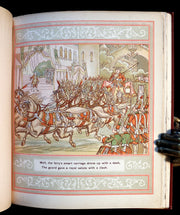 Well, the fairy's smart carriage drove up with a dash,
The guard gave a royal salute with a clash.